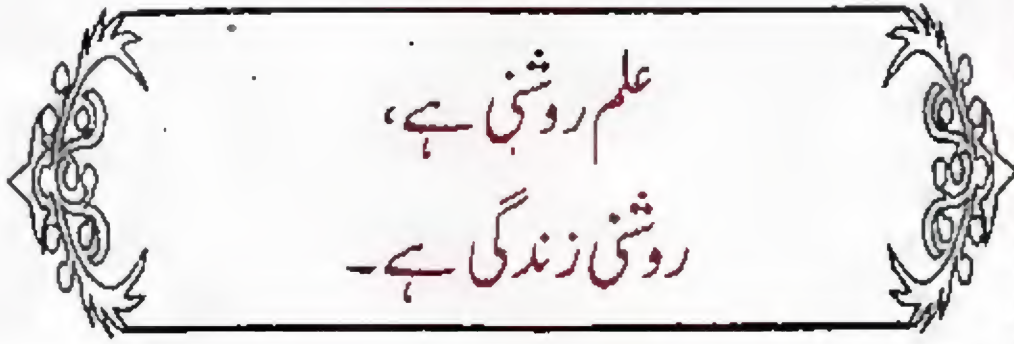 علم روشنی ہے،
روشنی زندگی ہے۔